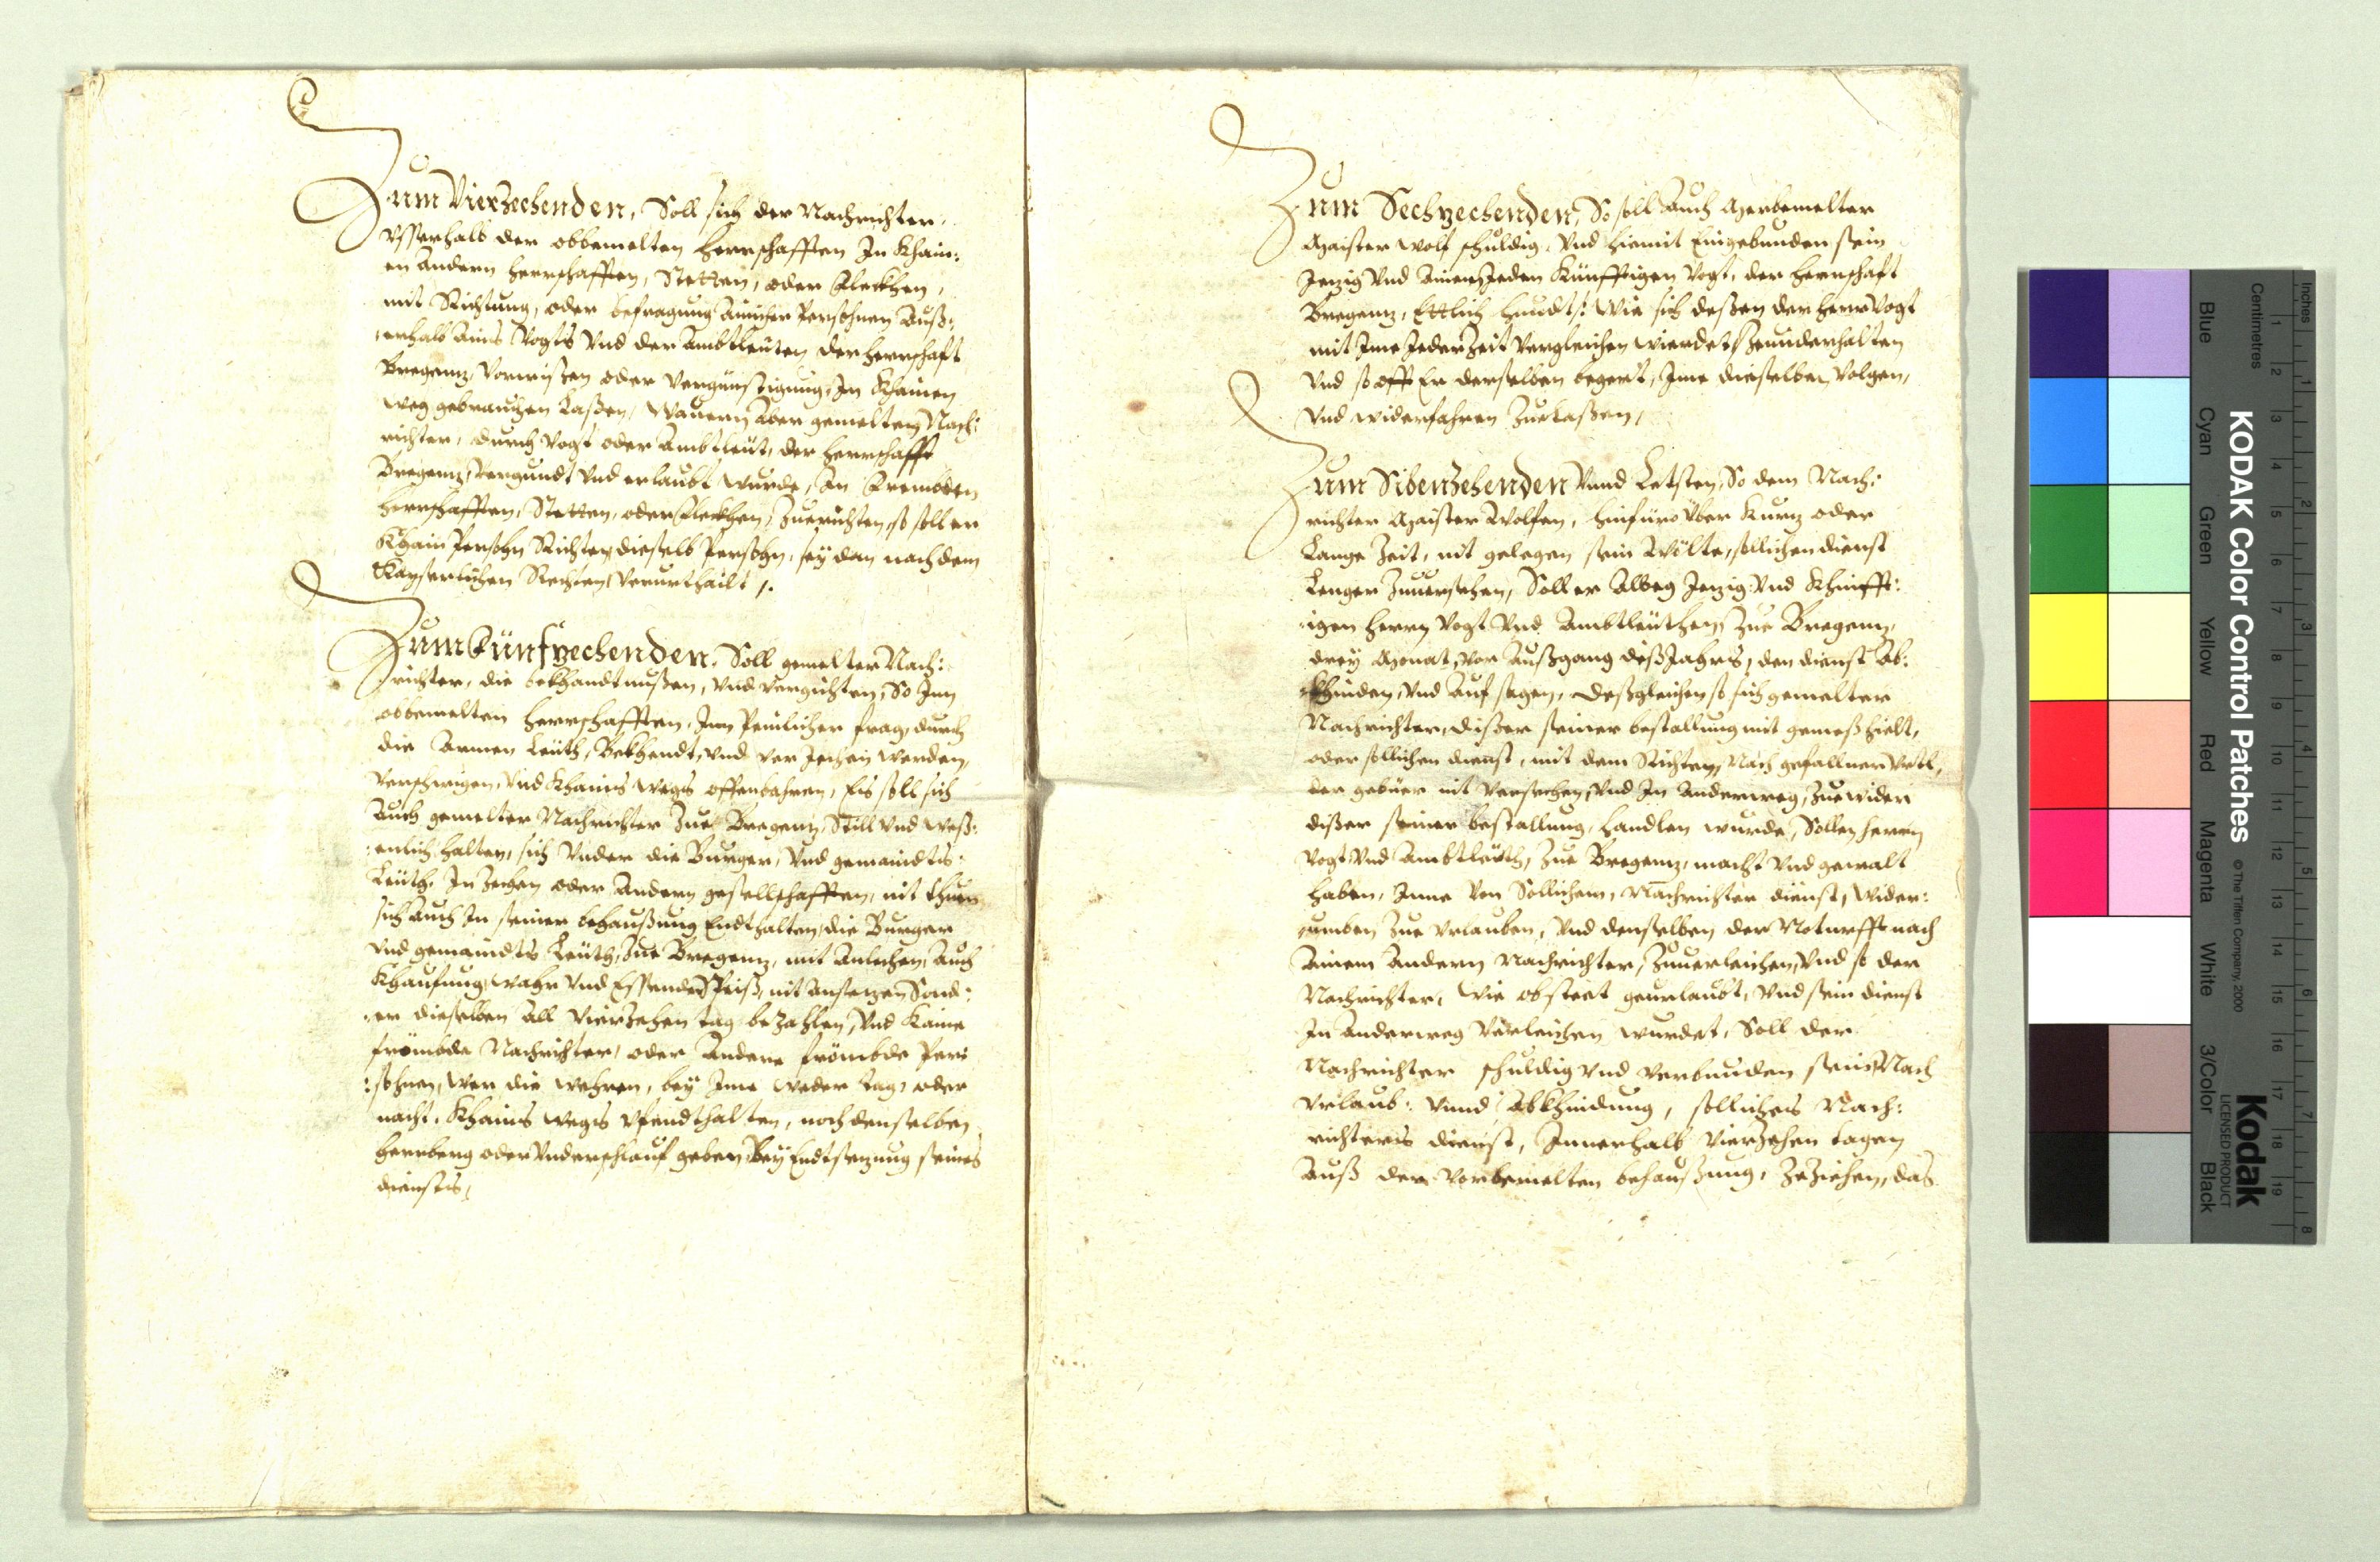 Zum Vierzechenden, Soll sich der Nachrichter,
Vsserhalb der obbemelten Herrschafften In Khain:
en Andern Herrschafften, Stetten, oder Fleckhen,
mit Richtung, oder befragung Ainicher Persohnen Auß:
:erhalb Ains Vogts Vnd der Ambtleüten der Herrschaft
Bregenz, Vorwißen oder Vergünstigung, In Khainen
weg gebrauchen Laßen, Wauern Aber gemelten Nach:
richter, durch Vogt oder Ambtleüt, der Herrschafft
Bregenz, Vergundt Vnd erlaubt wurde, An Frembden
Herrschafften, Stetten, oder Fleckhen, Zuerichten, so soll er
Khain Persohn Richten, dieselb Persohn, sey dan nach dem
Kayserlichen Rechten, Verurthailt /.
Zum Fünfzechenden. Soll gemelter Nach:
richter, die bekhandtnußen, Vnd Vergichten, So Inn
obbemelten Herrschafften, Inn Peinlicher frag, durch
die Armen Leüth, Bekhendt, Vnd Verjechen werden,
Verschwigen, Vnd Khains wegs offenbahren, Es soll sich
Auch gemelter Nachrichter Zue Bregenz, Still Vnd Weß:
:enlich halten, sich Vnder die Burger, Vnd gemaindts:
Leüth, In Zechen oder Andern gesellschafften, nit thuen
sich Auch In seiner behaußung Endthalten, die Burger
Vnd gemaindts Leüth, Zue Bregenz, mit Anlechen, Auch
Khaufung, wahr Vnd Essender Speiß, nit Ansetzen Sond:
:er dieselben All Vierzehen tag bezahlen, Vnd Kaine
frömbde Nachrichter, oder Andere frömbde Per:
:sohnen, wer die wehren, bey Ime weder tag, oder
nacht, Khains wegs Vfendthalten, noch denselben
Herrberg oder Vnderschlauf geben, Bey Endtsetzung seines
diensts,
Zum Sechzechenden, So soll Auch Merbemelter
Maister Wolf schuldig, Vnd hiemit Eingebunden sein
Jetzig Vnd Ainem Jeden Künfftigen Vogt, der Herrschaft
Bregenz, Ettlich Hundt, Wie sich deßen der Herr Vogt
mit Ime Jeder Zeit Vergleichen wierdet, Zeunderhalten
Vnd so offt Er derselben begert, Ime dieselben Volgen,
Vnd widerfahren Zue Laßen,
Zum Sibenzehenden Vnnd Letsten, So dem Nach:
richter Maister Wolfen, hinfüro Über Kurz oder
Lange Zeit, nit gelegen sein Wolte, sollichen dienst
Lenger Zuuersehen, Soll er Alweg Jetzig Vnd Khünfft:
:igen Herrn Vogt Vnd Ambtleüthen, Zue Bregenz,
drey Monat, Vor Außgang deß Jahrs, den dienst Ab:
:khinden, Vnd Auf sagen, Deßgleichen so sich gemelter
Nachrichter, dißer seiner bestallung nit gemeß hielt,
oder sollichen dienst, mit dem Richten, Nach gefallner Vrtl,
der gebüer nit Versechen, Vnd In Anderweg, Zue wider
dißer seiner bestallung, handlen wurde, Sollen Herrn
Vogt Vnd Ambtleüth, Zue Bregenz, macht Vnd gewalt
haben, Inne Von Sollichem, Nachrichter dienst, Wider:
:umben Zue Vrlauben, Vnd denselben der Noturfft nach
Ainem Andern Nachrichter, Zuuerleichen, Vnd so der
Nachrichter, wie obsteet geurlaubt, Vnd sein dienst
In Anderweg Verleichen wurdet, Soll der
Nachrichter schuldig Vnd Verbunden sein, Nach
Vrlaub: Vnnd Abkhindung, solliches Nach:
richters dienst, Innerhalb Vierzehen tagen
Auß der Vorbemelten behaußung, Zeziehen, das
KODAK Color Control Patches
© The Tiffen Company, 2000
Kodak
LICENSED PRODUCT
Inches
Centimetres
Blue Cyan Green Yellow Red Magenta White 3/Color Black
1 2 3 4 5 6 7 8
1 2 3 4 5 6 7 8 9 10 11 12 13 14 15 16 17 18 19